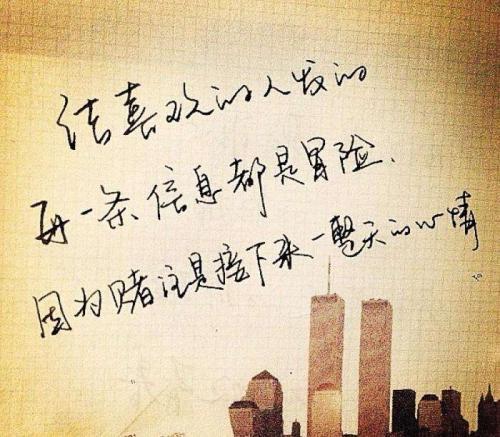 给喜欢的人发的
每一条信息都是冒险、
因为赌注是接下来一整天的心情